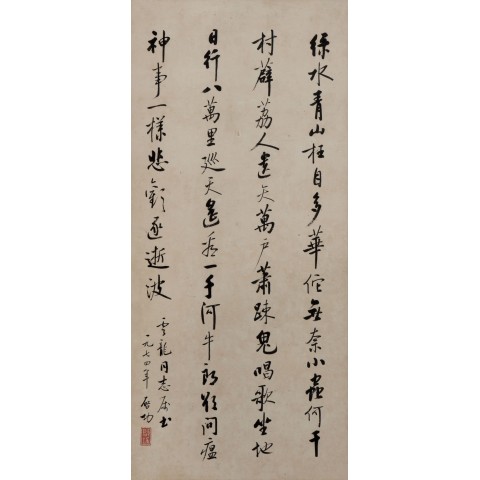 綠水青山枉自多華佗無奈小蟲何千
村薜荔人遺矢萬戶蕭疎鬼唱歌坐地
日行八萬里巡天遙看一千河牛郎欲問瘟
神事一樣悲歡逐逝波
雲龍同志属書
一九七四年 啟功